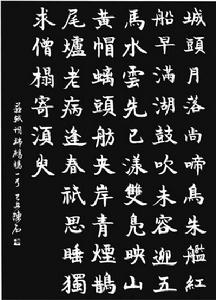 城頭月落尚啼烏朱艦紅
船早滿湖鼓吹未容迎五
馬水雲先已漾雙鳧映山
黃帽螭頭舫夾岸青煙鵲
尾爐老病逢春祇思睡獨
求僧榻寄須臾
蘇軾詞瑞鷓鴣